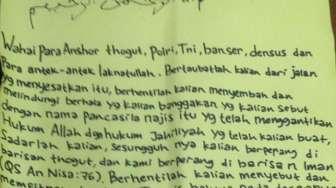 Wahai Para Anshor thogut, Polri, Tni, banser, densus dan
Para antek-antek laknatullah. Bertaubatlah kalian dari jalan
yg menyesatkan itu, berhentilah kalian menyembah dan
melindungi berhala yg kalian banggakan yg kalian sebut
dengan nama pancasila najis itu yg telah menggantikan
Hukum Allah dgn hukum Jahiliyah yg telah kalian buat,
Sadarlah kalian, sesungguh nya kalian berperang di
barisan thogut, dan kami berperang di barisan Iman
(QS An Nisa:76). Berhentilah kalian menyebut dan